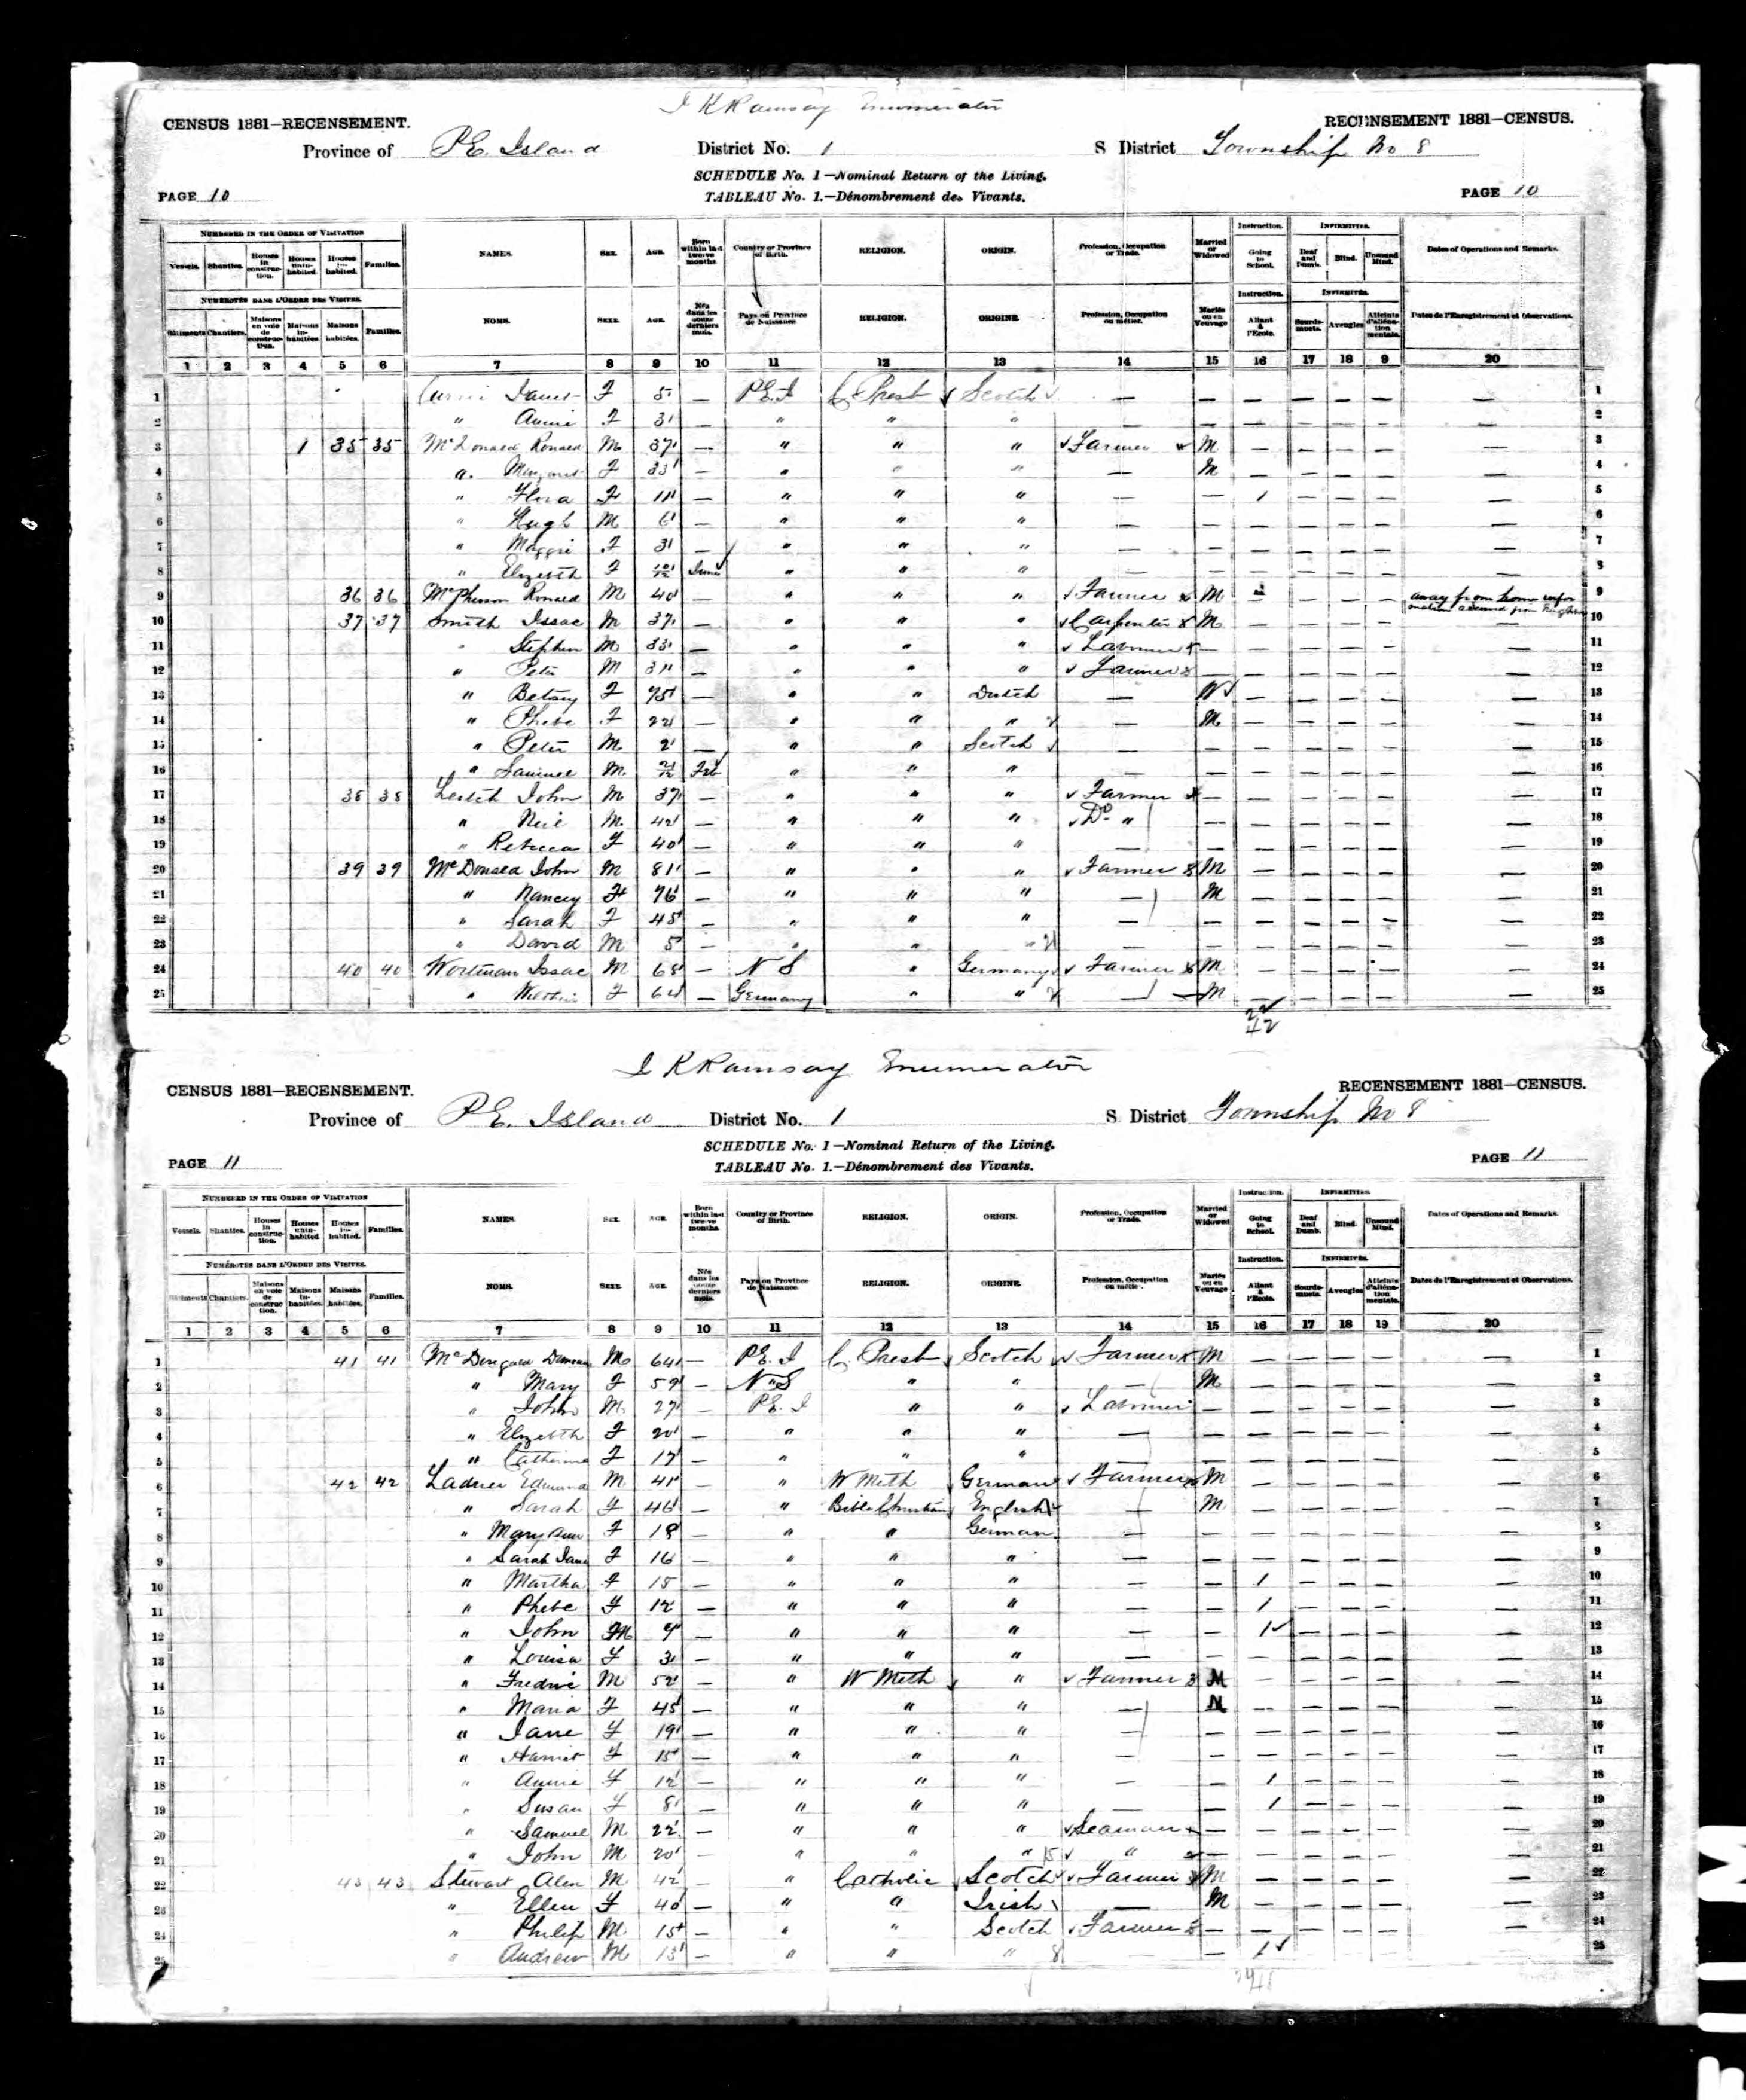 I K Ramsay Enumerator
CENSUS 1881–RECENSEMENT. RECENSEMENT 1881–CENSUS.
Province of P.E. Island District No. 1 S District Township No 8
SCHEDULE No. 1—Nominal Return of the Living.
PAGE 10 TABLEAU No. 1.—Dénombrement des Vivants. PAGE 10
NUMBERED IN THE ORDER OF VISITATION
Vessels. Shanties. Houses in construction. Houses uninhabited. Houses inhabited. Families. NAMES. SEX. AGE. Born within last twelve months Country or Province of Birth. RELIGION. ORIGIN. Profession, Occupation or Trade. Married or Widowed Instruction. Going to School. INFIRMITIES. Deaf and Dumb. Blind. Unsound Mind. Dates of Operations and Remarks.
NUMÉROTÉS DANS L'ORDRE DES VISITES.
Bâtiments Chantiers. Maisons en voie de construction. Maisons inhabitées. Maisons habitées. Familles. NOMS. SEXE. AGE. Nés dans les douze derniers mois. Pays ou Province de Naissance RELIGION. ORIGINE. Profession, Occupation ou métier. Mariés ou en Veuvage Instruction. Allant à l'Ecole. INFIRMITÉS. Sourds-muets. Aveugles Atteints d'aliénation mentale. Dates de l'Enregistrement et Observations.
1 2 3 4 5 6 7 8 9 10 11 12 13 14 15 16 17 18 9 20
1 Janet F 5 — P.E.I C. Presb Scotch — — — — — — — 1
2 " Annie F 3 — " " " — — — — — — 2
3 1 35 35 McDonald Ronald M 37 — " " " Farmer M — — — — — 3
4 Margaret F 33 — " " " — M — — — — — 4
5 " Flora F 11 — " " " — — 1 — — — — 5
6 " Hugh M 6 — " " " — — — — — — — 6
7 " Maggie F 3 — " " " — — — — — — — 7
8 " Elizebeth F 10/12 June " " " — — — — — — — 8
9 36 36 McPherson Ronald M 40 — " " " Farmer M — — — — away from home infor 9
10 37 37 Smith Issac M 37 — " " " Carpenter M — — — — 10
11 " Stephen M 33 — " " " — — — — — — 11
12 " Peter M 31 — " " " Farmer — — — — — — 12
13 " Betsey F 75 — " " Dutch — W — — — — — 13
14 " Phebe F 22 — " " " — M — — — — — 14
15 " Peter M 2 — " " Scotch — — — — — — — 15
16 " Samuel M 2/12 Feb " " " — — — — — — — 16
17 38 38 Leitch John M 37 — " " " Farmer — — — — — — 17
18 " Neil M 42 — " " " Do " — — — — — — 18
19 " Rebecca F 40 — " " " — — — — — — — 19
20 39 39 McDonald John M 81 — " " " Farmer M — — — — — 20
21 " Nancey F 76 — " " " — M — — — — — 21
22 " Sarah F 45 — " " " — — — — — — — 22
23 " David M 5 — " " " — — — — — — — 23
24 40 40 Wortman Issac M 68 — N S " Germany Farmer M — — — — — 24
25 F — Germany " " — M — — — — — 25
I K Ramsay Enumerator
CENSUS 1881–RECENSEMENT. RECENSEMENT 1881–CENSUS.
Province of P.E. Island District No. 1 S District Township No 8
SCHEDULE No. 1—Nominal Return of the Living.
PAGE 11 TABLEAU No. 1.—Dénombrement des Vivants. PAGE 11
NUMBERED IN THE ORDER OF VISITATION
Vessels. Shanties. Houses in construction. Houses uninhabited Houses inhabited. Families. NAMES. SEX. AGE. Born within last twelve months Country or Province of Birth. RELIGION. ORIGIN. Profession, Occupation or Trade. Married or Widowed Instruction. Going to School. INFIRMITIES. Deaf and Dumb. Blind. Unsound Mind. Dates of Operations and Remarks.
NUMÉROTÉS DANS L'ORDRE DES VISITES.
Bâtiments Chantiers. Maisons en voie de construction. Maisons inhabitées. Maisons habitées. Familles. NOMS. SEXE. AGE. Nés dans les douze derniers mois. Pays ou Province de Naissance. RELIGION. ORIGINE. Profession, Occupation ou métier. Mariés ou en Veuvage Instruction. Allant à l'Ecole. INFIRMITÉS. Sourds-muets. Aveugles Atteints d'aliénation mentale. Dates de l'Enregistrement et Observations.
1 2 3 4 5 6 7 8 9 10 11 12 13 14 15 16 17 18 19 20
1 41 41 McDougald Duncan M 64 — P.E.I C. Presb Scotch Farmer M — — — — — 1
2 " Mary F 59 — N S " " — M — — — — — 2
3 " John M 27 — P.E.I " " — — — — — — 3
4 " Elizebeth F 20 — " " " — — — — — — — 4
5 " Catherine F 17 — " " " — — — — — — — 5
6 42 42 Ladner Edmund M 41 — " W Meth German Farmer M — — — — — 6
7 " Sarah F 46 — " Bible Christian English — M — — — — — 7
8 " Mary Ann F 18 — " " German — — — — — — — 8
9 " Sarah Jane F 16 — " " " — — — — — — — 9
10 " Martha F 15 — " " " — — 1 — — — — 10
11 " Phebe F 12 — " " " — — 1 — — — — 11
12 " John M — " " " — — 1 — — — — 12
13 " Louisa F 3 — " " " — — — — — — — 13
14 " Fredric M 52 — " W Meth " Farmer M — — — — — 14
15 " Maria F 45 — " " " — M — — — — — 15
16 " Jane F 19 — " " " — — — — — — — 16
17 " Harriet F 15 — " " " — — — — — — — 17
18 " Annie F 12 — " " " — — 1 — — — — 18
19 " Susan F 8 — " " " — — 1 — — — — 19
20 " Samuel M 22 — " " " Seaman — — — — — — 20
21 " John M 20 — " " " " — — — — — — 21
22 43 43 Stewart Alex M 42 — " Catholic Scotch Farmer M — — — — — 22
23 " Ellen F 40 — " " Irish — M — — — — — 23
24 " Philip M 15 — " " Scotch Farmer — — — — — — 24
25 " Andrew M 13 — " " " — — 1 — — — — 25